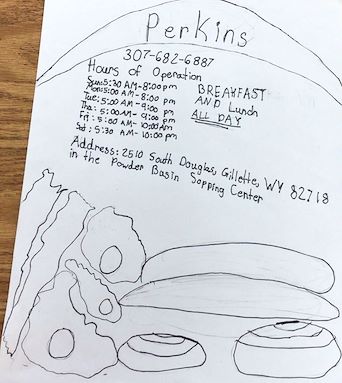 Perkins
307-682-6887
Hours of Operation
Sun: 5:30 AM-8:00 pm
Mon: 5:00 AM-8:00 pm
Tue: 5:00 AM-9:00 pm
Thu: 5:00 AM-9:00 pm
Fri: 5:00 AM-10:00 Am
Sat: 5:30 AM-10:00 pm
BREAKFAST
AND Lunch
ALL DAY
Address: 2510 South Douglas, Gillette, WY 82718
in the Powder Basin Sopping Center